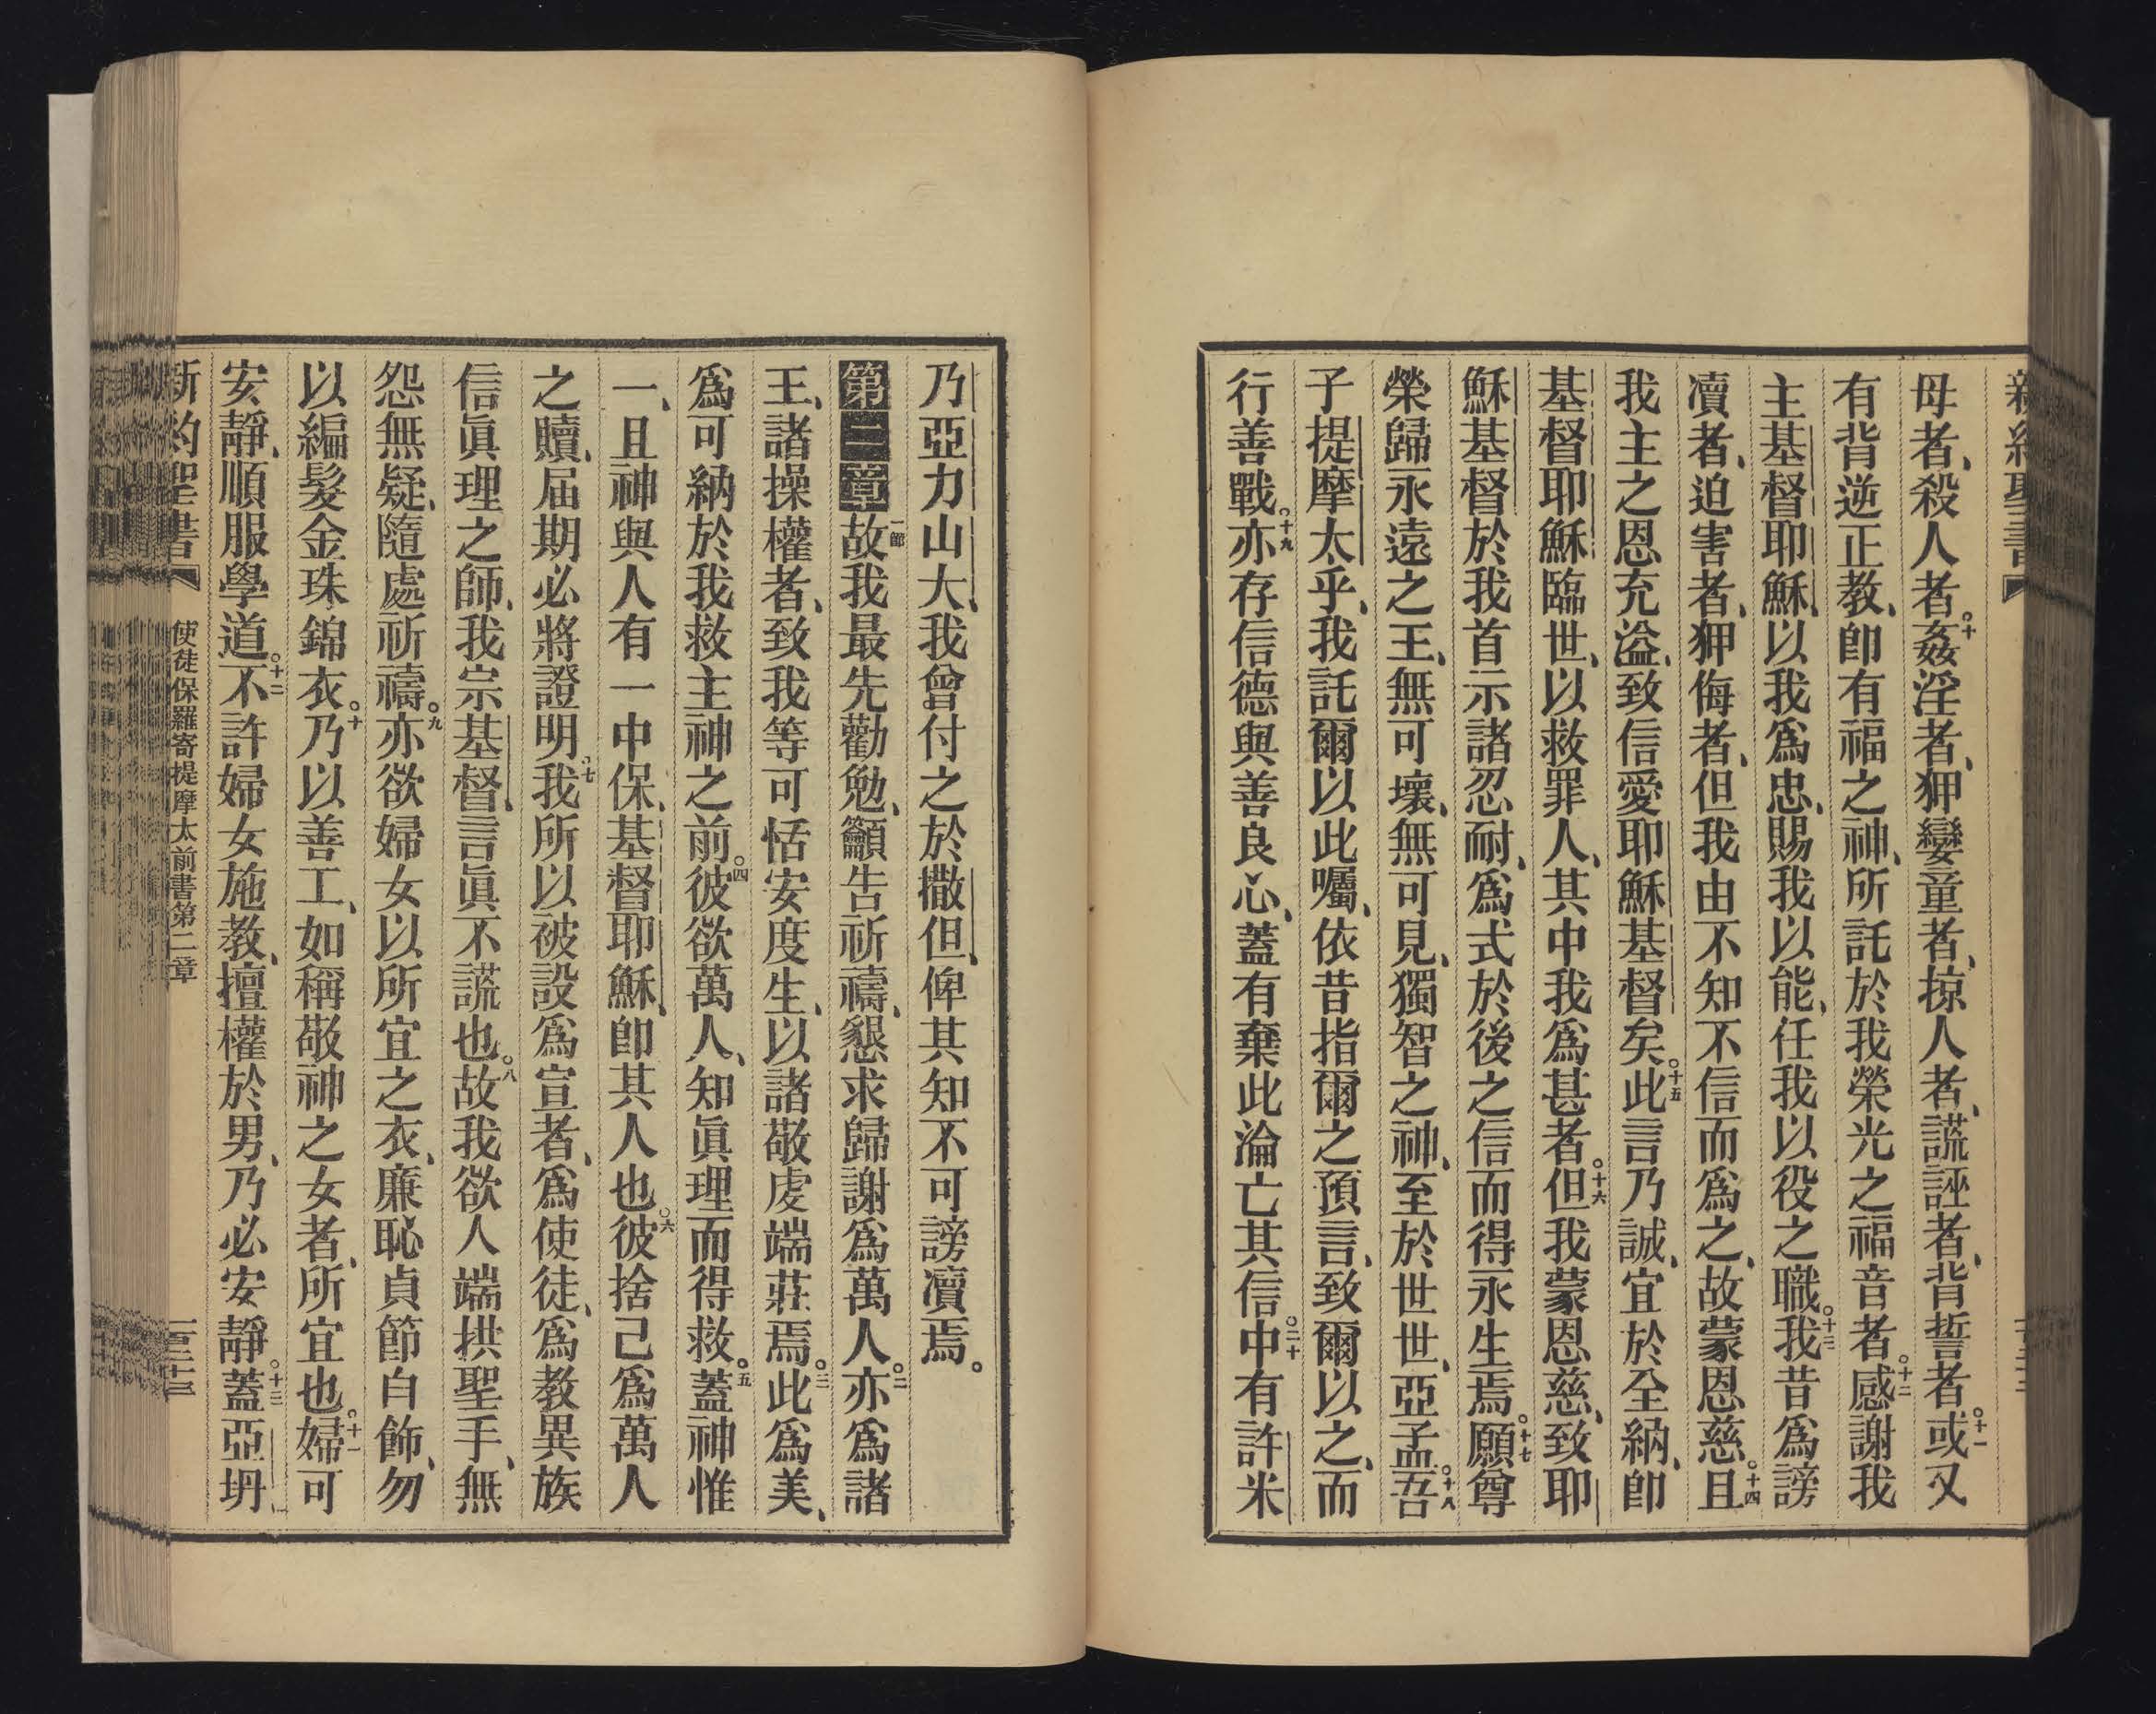 新約聖書
母者、殺人者。十姦淫者、狎孌童者、掠人者、謊誣者、背誓者。十一或又
有背逆正教、卽有福之神、所託於我榮光之福音者。十二感謝我
主基督耶穌、以我爲忠、賜我以能、任我以役之職。十三我昔爲謗
凟者、迫害者、狎侮者、但我由不知不信而爲之、故蒙恩慈。十四且
我主之恩充溢、致信愛耶穌基督矣。十五此言乃誠、宜於全納、卽
基督耶穌臨世、以救罪人、其中我爲甚者。十六但我蒙恩慈、致耶
穌基督於我首示諸忍耐、爲式於後之信而得永生焉。十七願尊
榮歸永遠之王、無可壞、無可見、獨智之神、至於世世、亞孟。十八吾
子提摩太乎、我託爾以此囑、依昔指爾之預言、致爾以之、而
行善戰。十九亦存信德與善良心、蓋有棄此淪亡其信。二十中有許米
乃亞力山大、我曾付之於撒但、俾其知不可謗凟焉。
第二章一節故我最先勸勉、籲告祈禱、懇求歸謝爲萬人。二亦爲諸
王、諸操權者、致我等可恬安度生、以諸敬虔端莊焉。三此爲美、
爲可納於我救主神之前。四彼欲萬人、知眞理而得救。五蓋神惟
一、且神與人有一中保、基督耶穌、卽其人也。六彼捨己爲萬人
之贖、届期必將證明。七我所以被設爲宣者、爲使徒、爲教異族
信眞理之師、我宗基督、言眞不謊也。八故我欲人端拱聖手、無
怨無疑、隨處祈禱。九亦欲婦女以所宜之衣、廉恥貞節白飾、勿
以編髮金珠錦衣。十乃以善工、如稱敬神之女者、所宜也。十一婦可
安靜、順服學道。十二不許婦女施教、擅權於男、乃必安靜。十三蓋亞坍
新約聖書 使徒保羅寄提摩太前書第二章